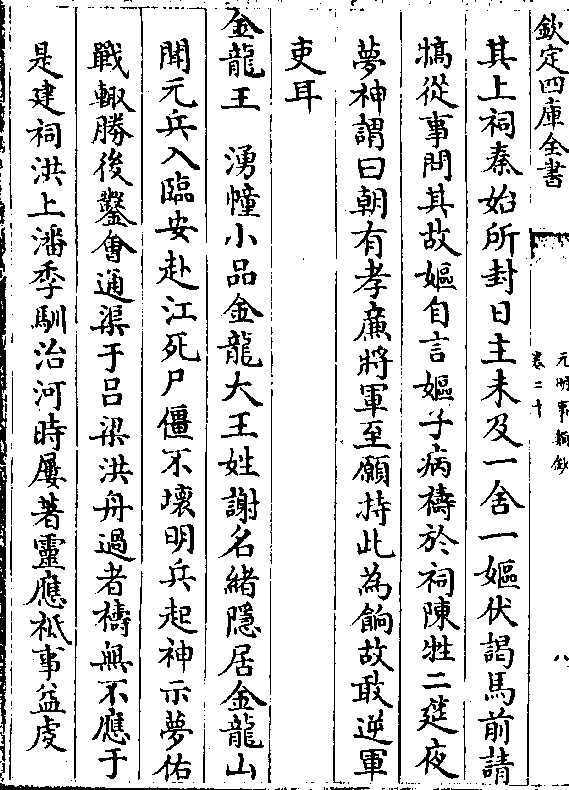 欽定四庫全書
元明事類鈔
卷二十
八
其上祠秦始所封日主未及一舍一嫗伏謁馬前請
犒從事問其故嫗自言嫗子病禱於祠陳牲二筵夜
夢神謂曰朝有孝廉將軍至願持此為餉故敢逆軍
吏耳
金龍王　湧幢小品金龍大王姓謝名緒隱居金龍山
聞元兵入臨安赴江死尸僵不壞明兵起神示夢佑
戰輙勝後鑿會通渠于吕梁洪舟過者禱無不應于
是建祠洪上潘季馴治河時屢著靈應祗事益虔